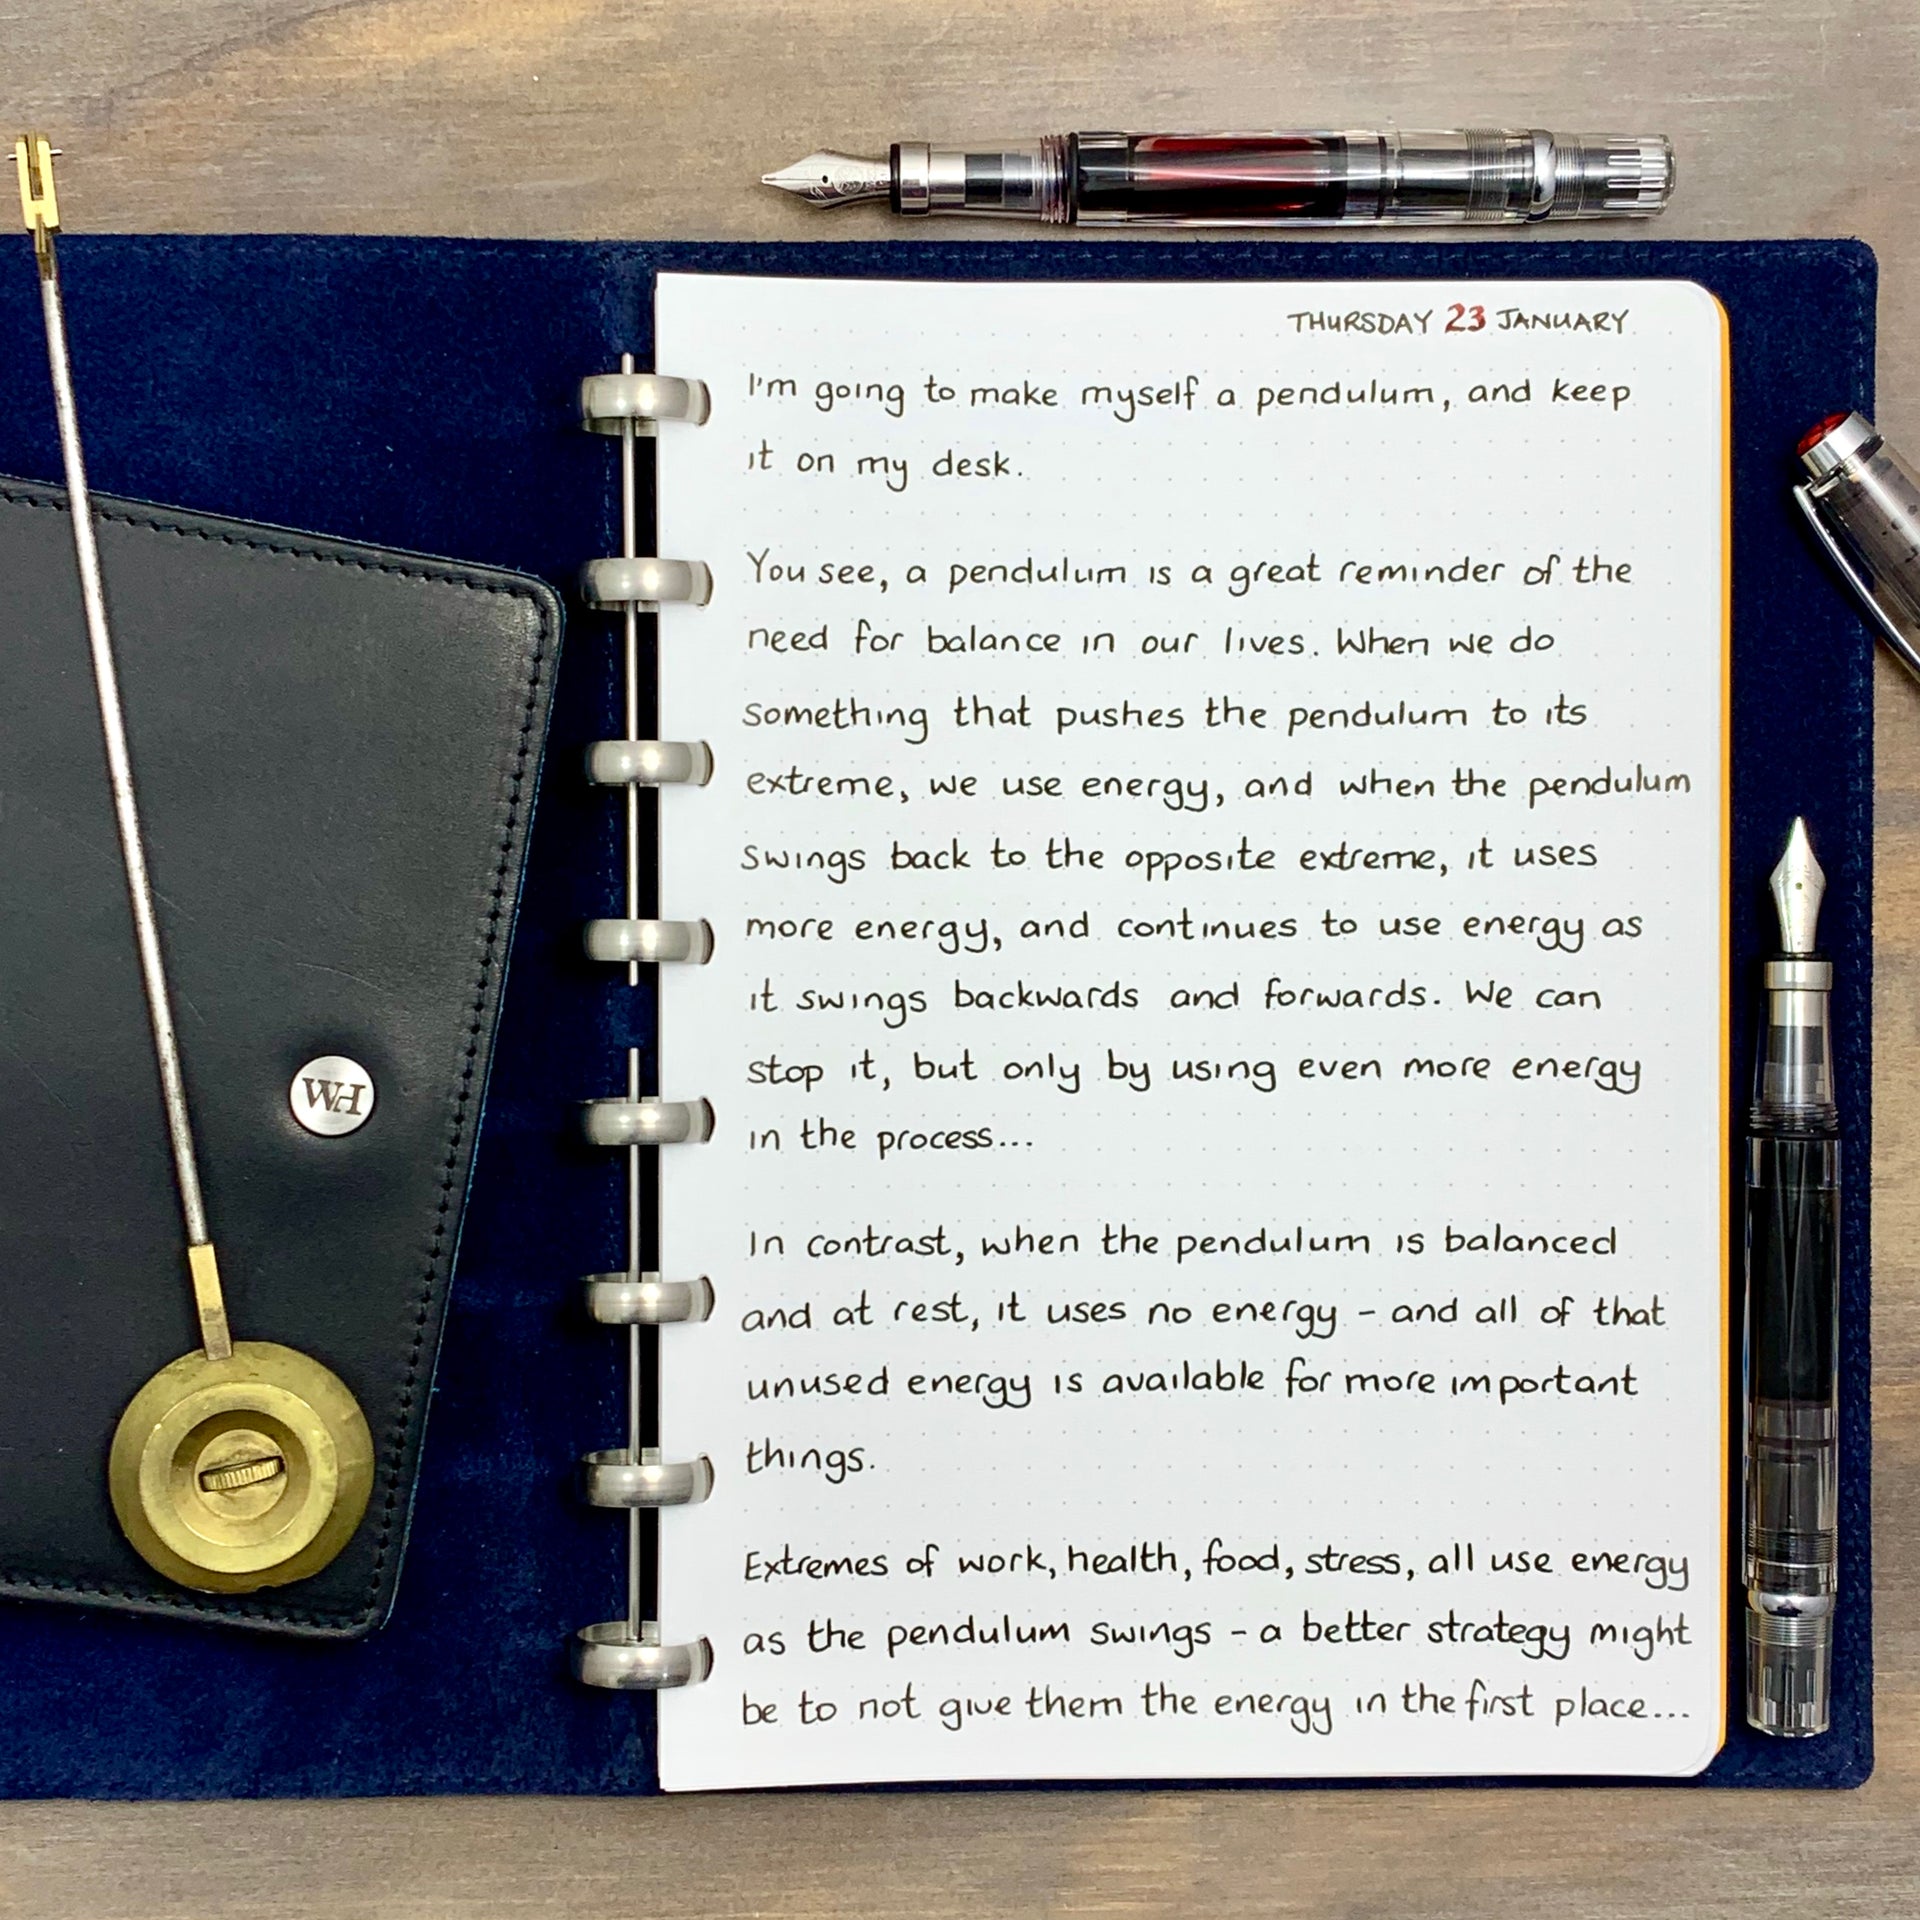 THURSDAY 23 JANUARY
I'm going to make myself a pendulum, and keep
it on my desk.
You see, a pendulum is a great reminder of the
need for balance in our lives. When we do
something that pushes the pendulum to its
extreme, we use energy, and when the pendulum
swings back to the opposite extreme, it uses
more energy, and continues to use energy as
it swings backwards and forwards. We can
stop it, but only by using even more energy
in the process...
In contrast, when the pendulum is balanced
and at rest, it uses no energy - and all of that
unused energy is available for more important
things.
Extremes of work, health, food, stress, all use energy
as the pendulum swings - a better strategy might
be to not give them the energy in the first place...
WH